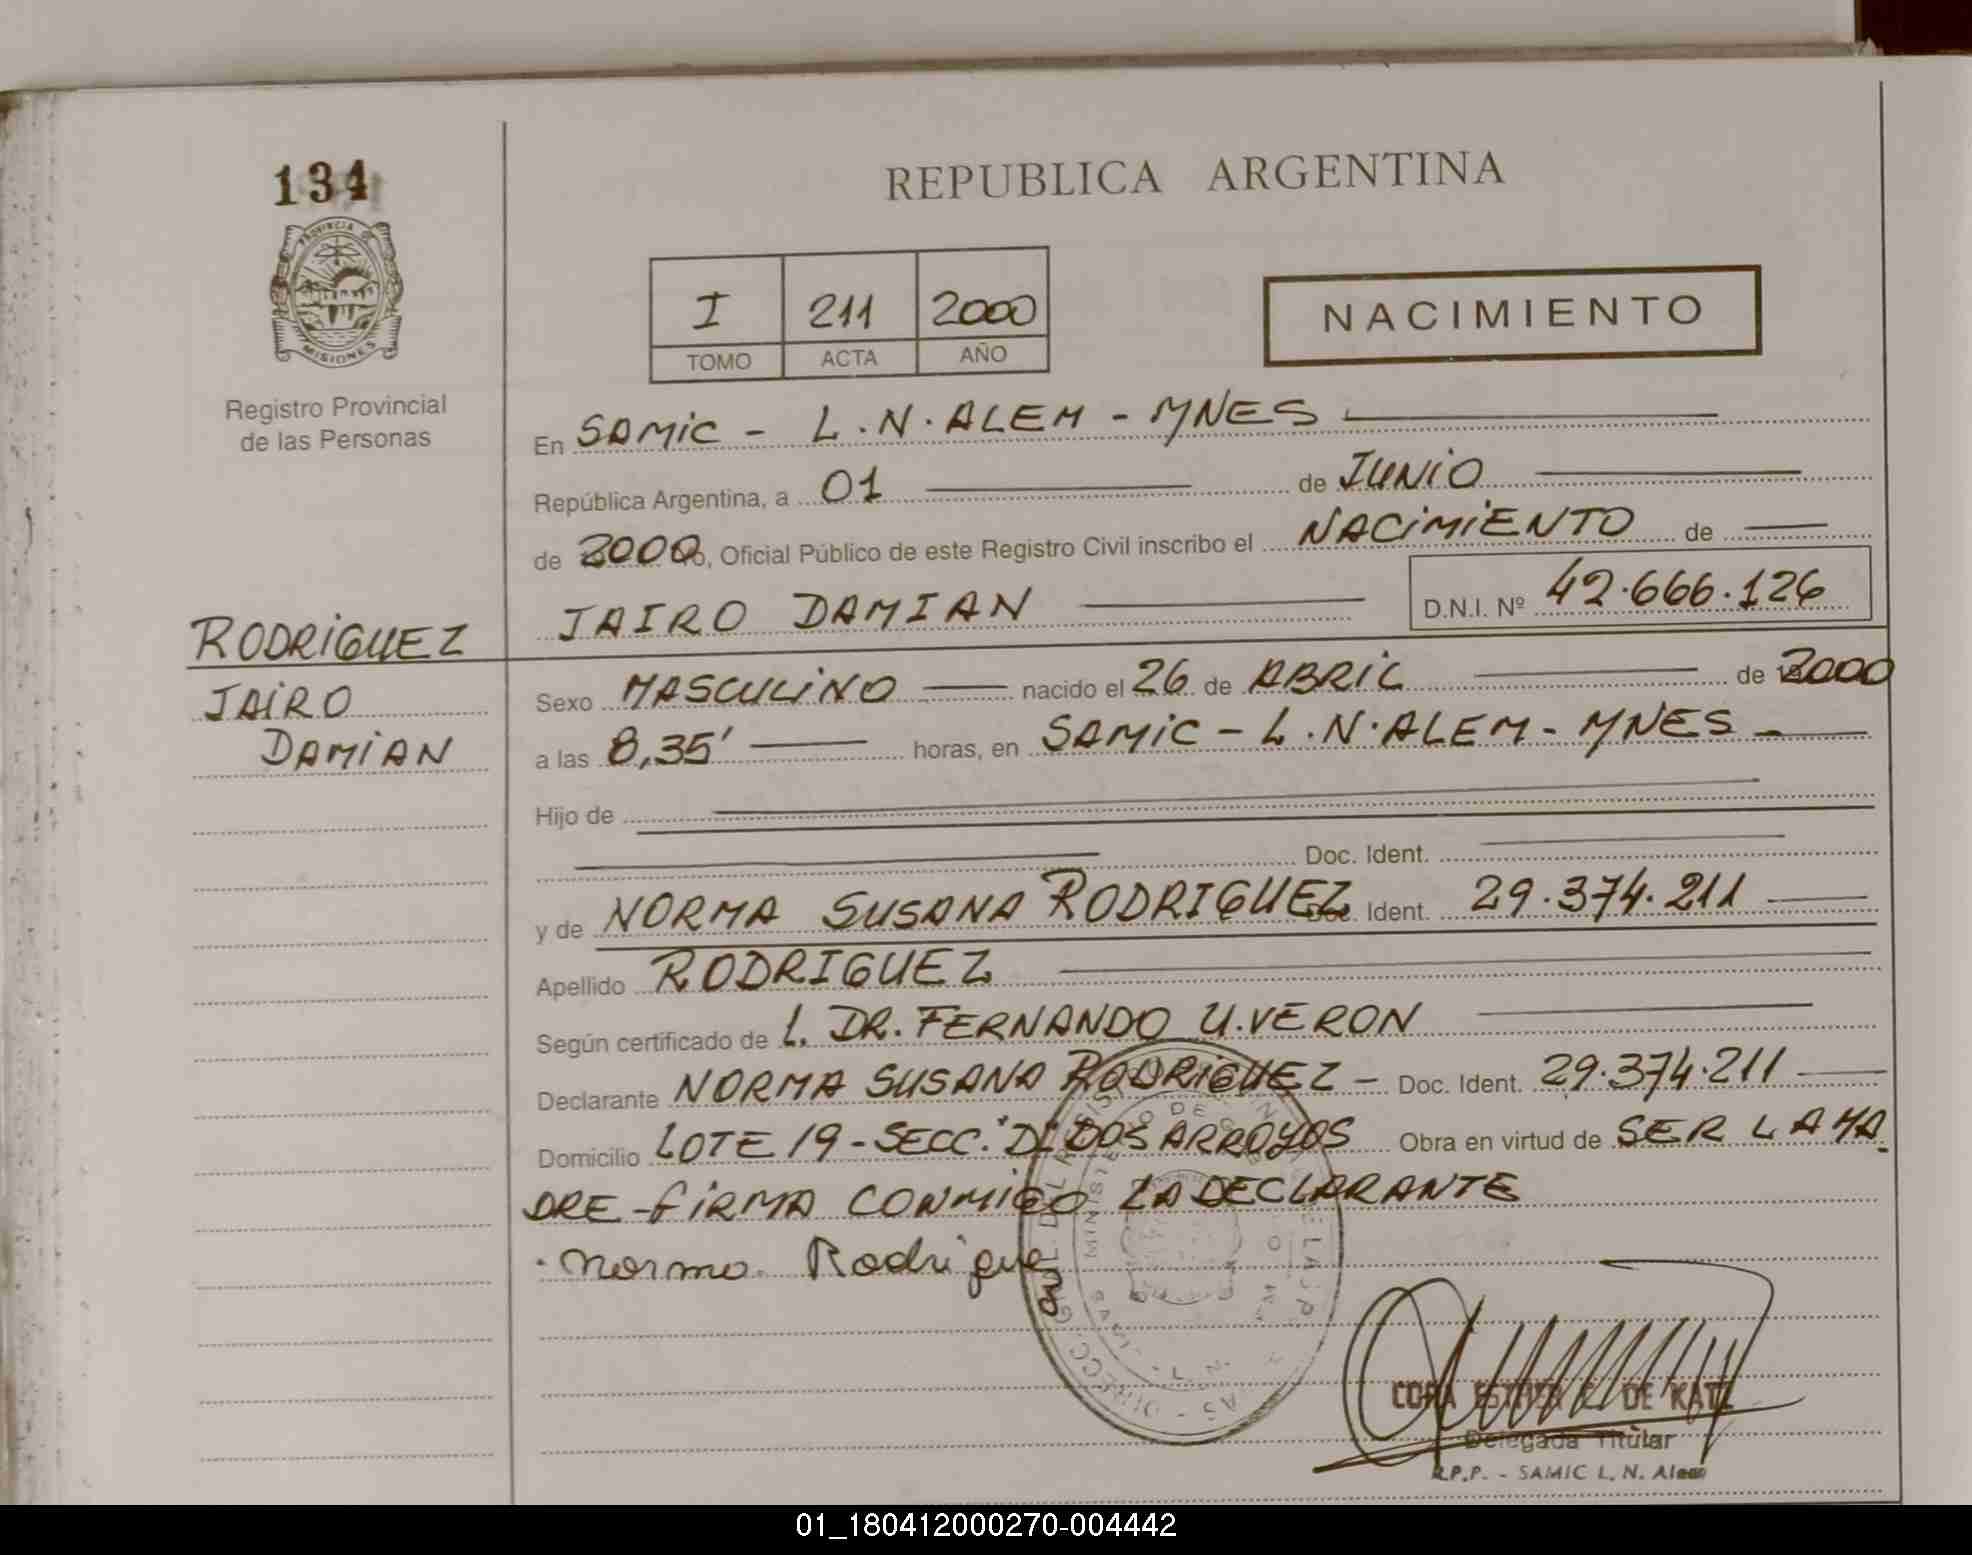 134
PROVINCIA DE
MISIONES
Registro Provincial
de las Personas
RODRIGUEZ
JAIRO
DAMIAN
REPUBLICA ARGENTINA
I 211 2000
TOMO ACTA AÑO
NACIMIENTO
En SAMIC - L.N.ALEM - MNES
República Argentina, a 01 de JUNIO
de 2000 yo, Oficial Público de este Registro Civil inscribo el NACIMIENTO de
JAIRO DAMIAN D.N.I. Nº 42.666.126
Sexo MASCULINO nacido el 26 de ABRIL de 2000
a las 8,35' horas, en SAMIC - L.N.ALEM - MNES -
Hijo de
Doc. Ident.
y de NORMA SUSANA RODRIGUEZ Doc. Ident. 29.374.211
Apellido RODRIGUEZ
Según certificado de L. DR. FERNANDO U. VERON
Declarante NORMA SUSANA RODRIGUEZ - Doc. Ident. 29.374.211
Domicilio LOTE 19 - SECC. "D" DOS ARROYOS Obra en virtud de SER LA MA
DRE - FIRMA CONMIGO LA DECLARANTE
Norma Rodriguez
CORA ESTHER DE KATZ
Delegada Titular
R.P.P. - SAMIC L. N. Alem
01_180412000270-004442